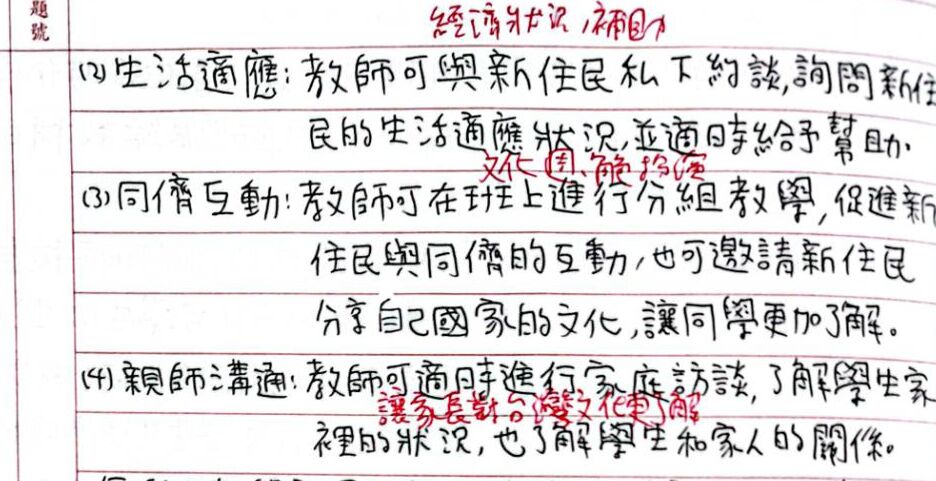 題號
經濟狀況,補助
(2)生活適應:教師可與新住民私下約談,詢問新住
民的生活適應狀況,並適時給予幫助.
文化週、角色扮演
(3)同儕互動:教師可在班上進行分組教學,促進新
住民與同儕的互動,也可邀請新住民
分享自己國家的文化,讓同學更加了解。
(4)親師溝通:教師可適時進行家庭訪談,了解學生家
讓家長對台灣文化更了解
裡的狀況,也了解學生和家人的關係。